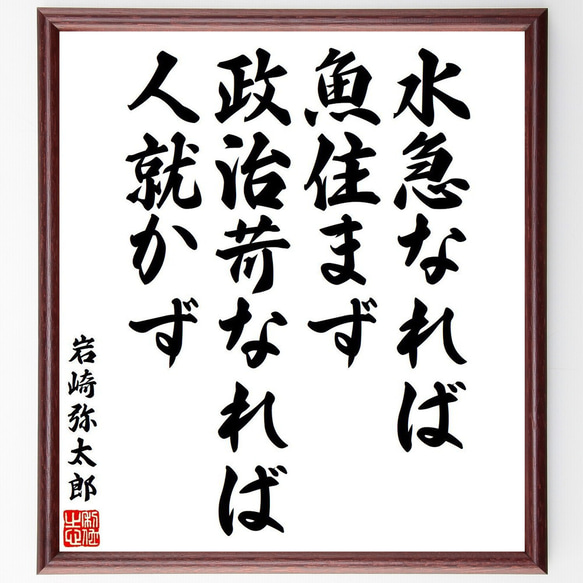 水急なれば
魚住まず
政治苛なれば
人就かず
岩崎弥太郎